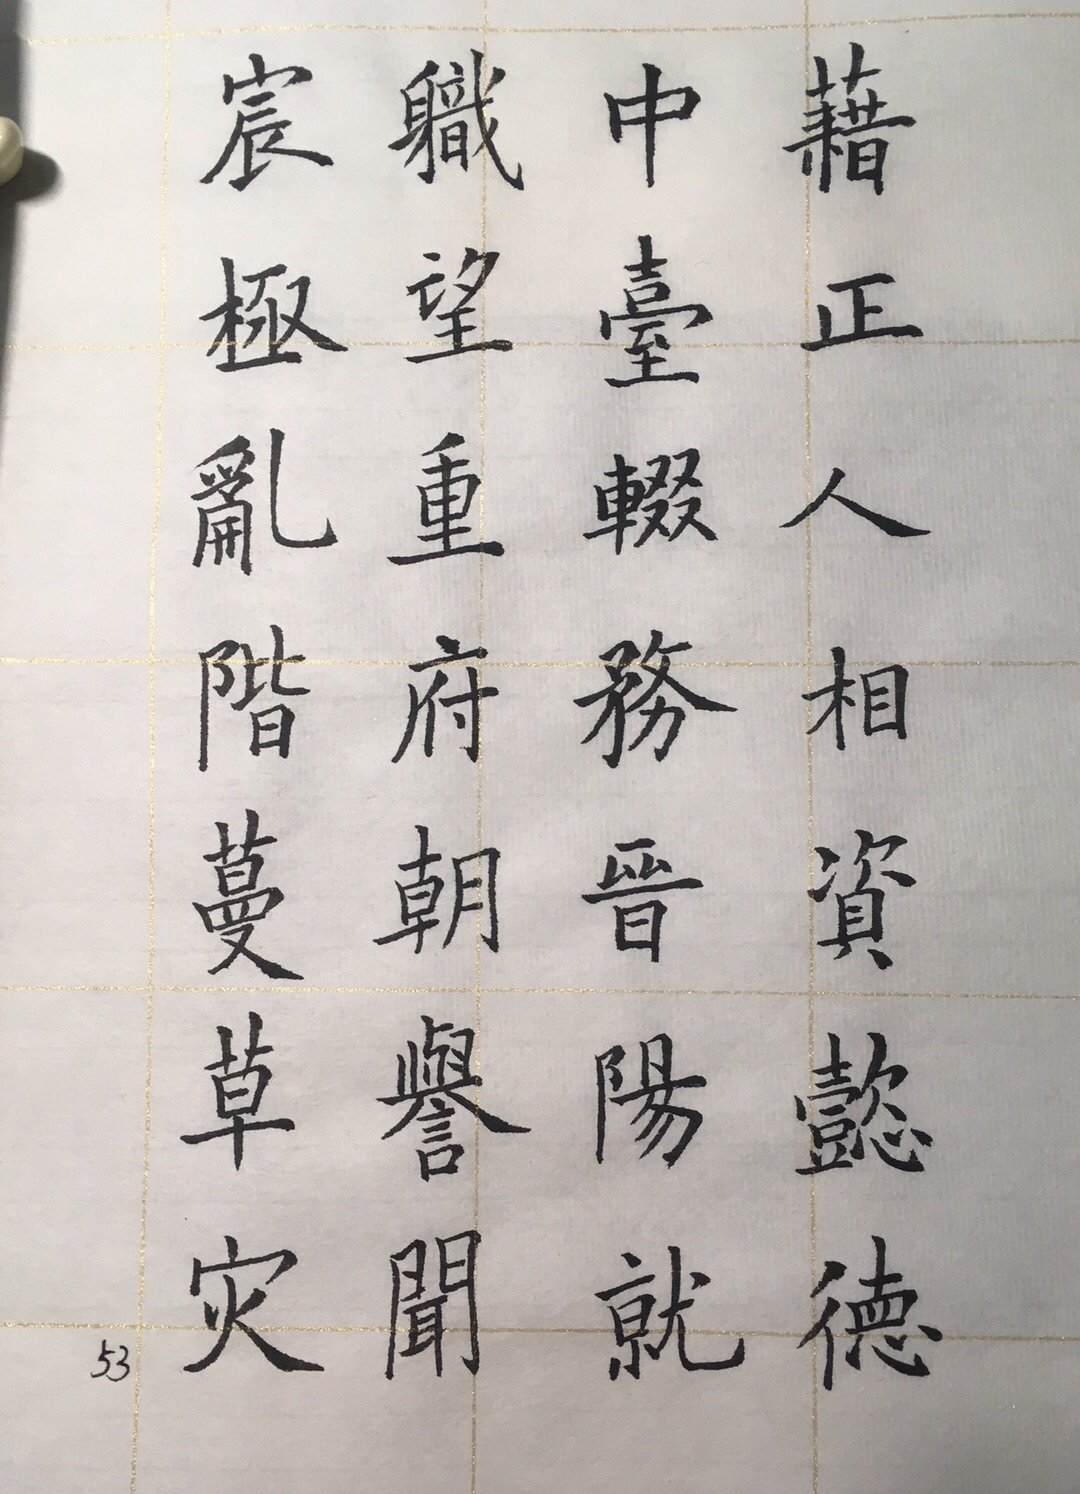 藉正人相資懿德
中臺輟務晉陽就
職望重府朝譽聞
宸極亂階蔓草灾
53